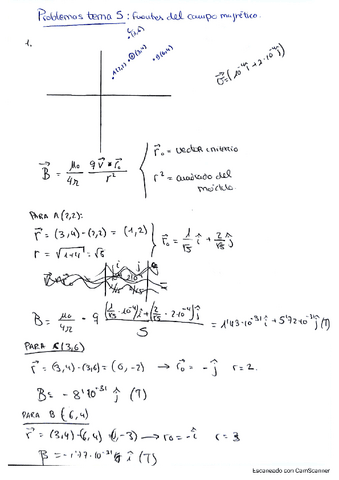 Problemas tema 5: Fuentes del campo magnético.
1.
C(3,6)
A(2,2) (3,4) B(6,4)
v=(10⁻⁴î+2·10⁻⁴ĵ)
B⃗ = μ₀/4π q v⃗ * r⃗₀ / r²
r⃗₀ = vector unitario
r² = cuadrado del módulo.
PARA A(2,2):
r⃗ = (3,4)-(2,2) = (1,2)
r = √1+4 = √5
r⃗₀ = 1/√5 î + 2/√5 ĵ
B = μ₀/4π · q (1/√5 · 10⁻⁴)î + (2/√5 · 2·10⁻⁴)ĵ / 5 = 1'43·10⁻³¹ î + 5'72·10⁻³¹ ĵ (T)
PARA C(3,6)
r⃗ = (3,4)-(3,6) = (0,-2) → r⃗₀ = -ĵ r = 2.
B = -8'10⁻³¹ ĵ (T)
PARA B (6,4)
r⃗ = (3,4)-(6,4) = (-3) → r₀ = -î r = 3
B = -1'77·10⁻³¹ î (T)
Escaneado con CamScanner